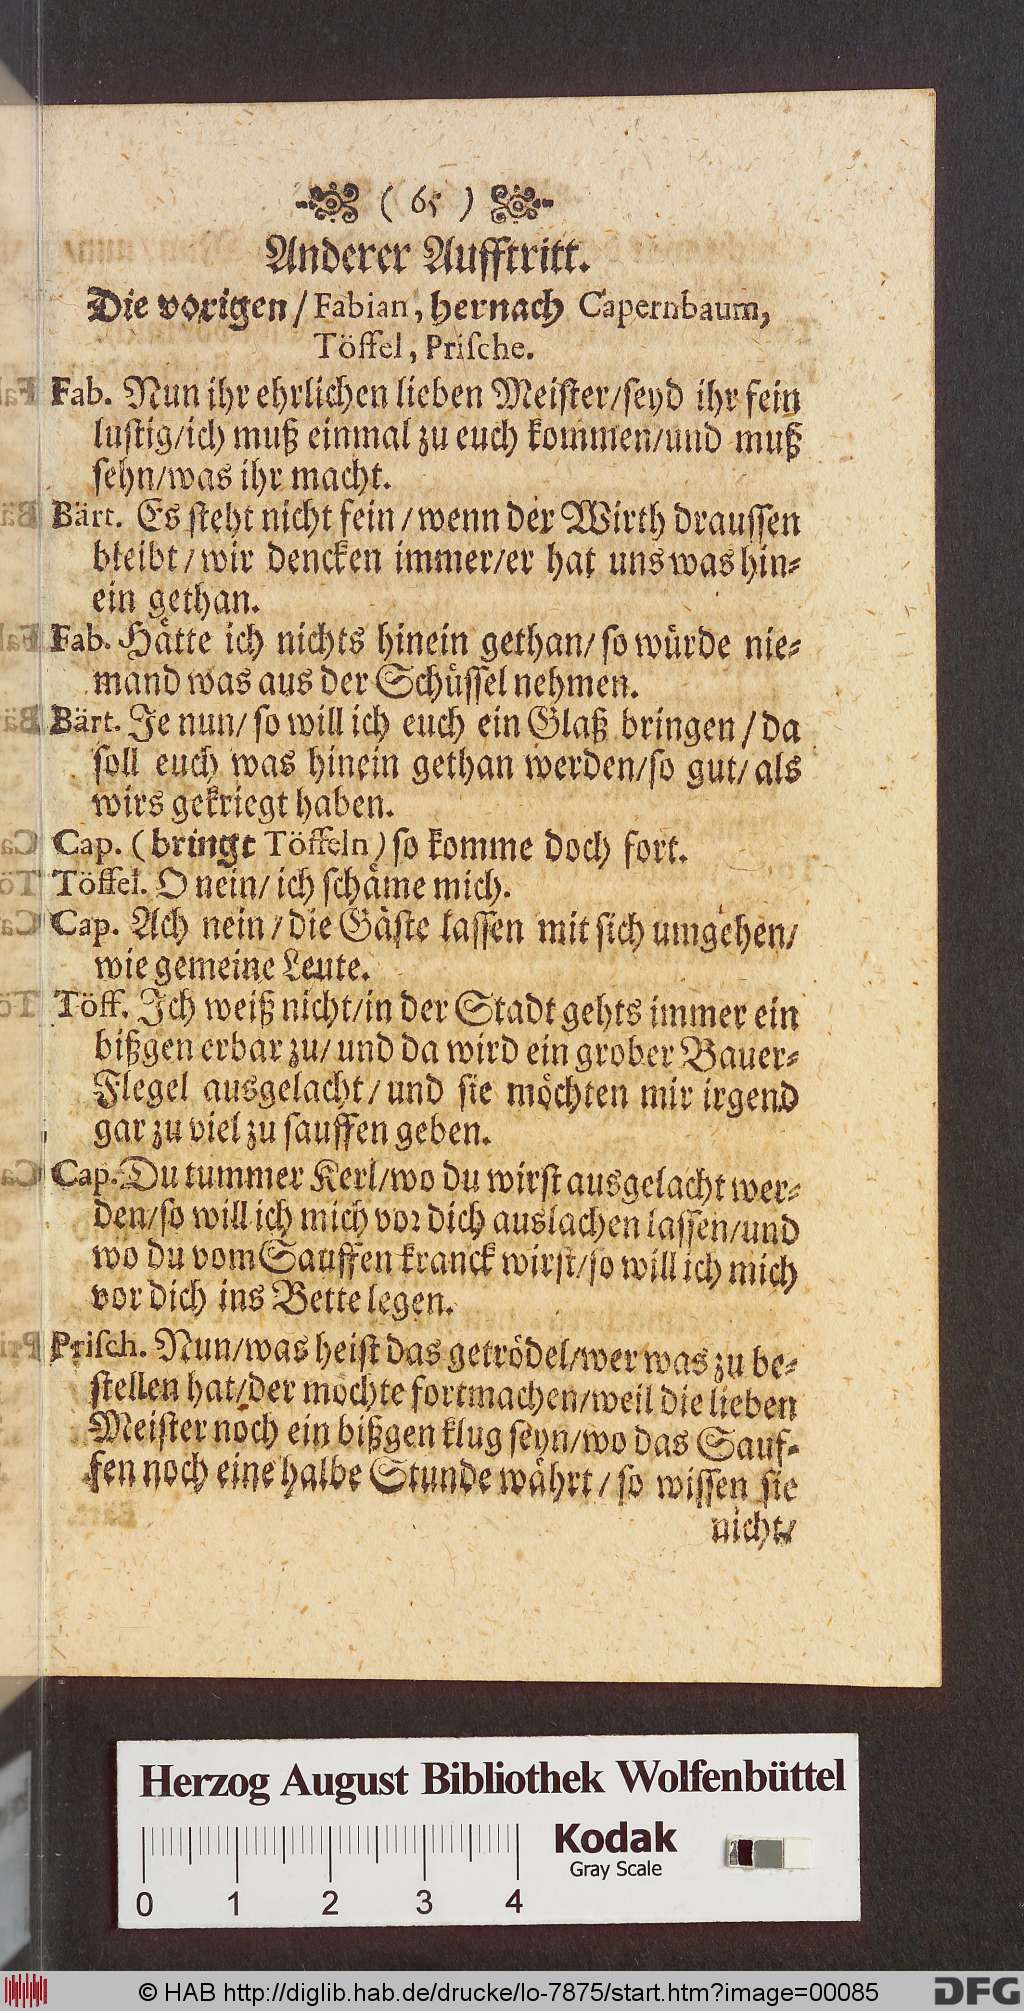 ( 65 )
Anderer Aufftritt.
Die vorigen / Fabian, hernach Capernbaum,
Töffel, Priſche.
Fab. Nun ihr ehrlichen lieben Meiſter/ſeyd ihr fein
luſtig/ich muß einmal zu euch kommen/und muß
ſehn/was ihr macht.
Bärt. Es ſteht nicht fein / wenn der Wirth drauſſen
bleibt / wir dencken immer/er hat uns was hin-
ein gethan.
Fab. Hätte ich nichts hinein gethan/ ſo würde nie-
mand was aus der Schüſſel nehmen.
Bärt. Je nun/ ſo will ich euch ein Glaß bringen / da
ſoll euch was hinein gethan werden/ſo gut/ als
wirs gekriegt haben.
Cap. (bringt Töffeln) ſo komme doch fort.
Töffel. O nein/ ich ſchäme mich.
Cap. Ach nein / die Gäſte laſſen mit ſich umgehen/
wie gemeine Leute.
Töff. Ich weiß nicht/in der Stadt gehts immer ein
bißgen erbar zu/ und da wird ein grober Bauer-
Flegel ausgelacht / und ſie möchten mir irgend
gar zu viel zu ſauffen geben.
Cap. Du tummer Kerl/wo du wirſt ausgelacht wer-
den/ſo will ich mich vor dich auslachen laſſen/und
wo du vom Sauffen kranck wirſt/ſo will ich mich
vor dich ins Bette legen.
Priſch. Nun/was heiſt das getrödel/wer was zu be-
ſtellen hat/der mochte fortmachen/weil die lieben
Meiſter noch ein bißgen klug ſeyn/wo das Sauf-
fen noch eine halbe Stunde währt / ſo wiſſen ſie
nicht/
Herzog August Bibliothek Wolfenbüttel
Kodak
Gray Scale
0 1 2 3 4
© HAB http://diglib.hab.de/drucke/lo-7875/start.htm?image=00085
DFG